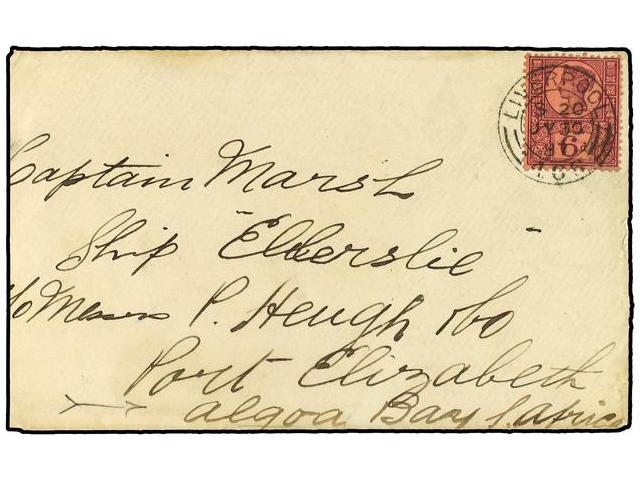 LIVERPOOL
20
JY 30
6
Captain Marsh
Ship "Ellerslie"
c/o Messrs P. Heugh & Co
Port Elizabeth
Algoa Bay S. Africa